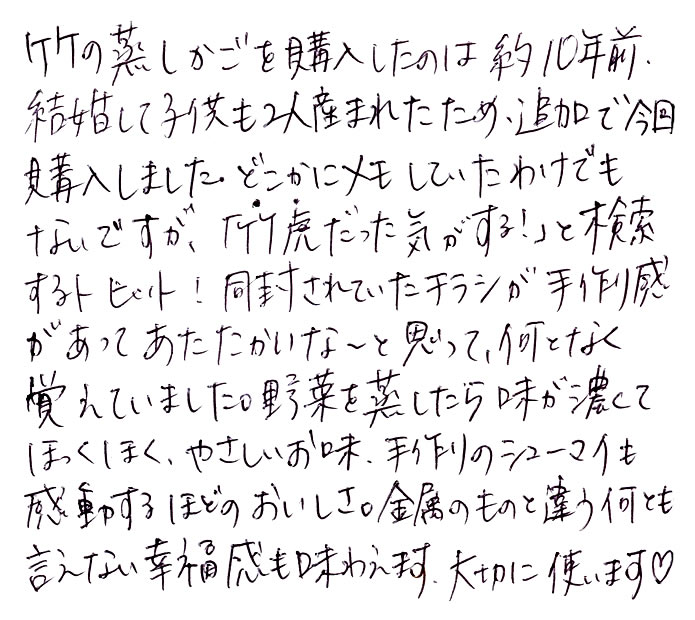 竹の蒸しかごを購入したのは約10年前、
結婚して子供も2人産まれたため、追加で今回
購入しました。どこかにメモしていたわけでも
ないですが、「竹虎だった気がする!」と検索
するとヒット!同封されていたチラシが手作り感
があってあたたかいな〜と思って、何となく
覚えていました。野菜を蒸したら味が濃くて
ほっくほく、やさしいお味、手作りのシューマイも
感動するほどのおいしさ。金属のものと違う何とも
言えない幸福感も味わえます、大切に使います♡